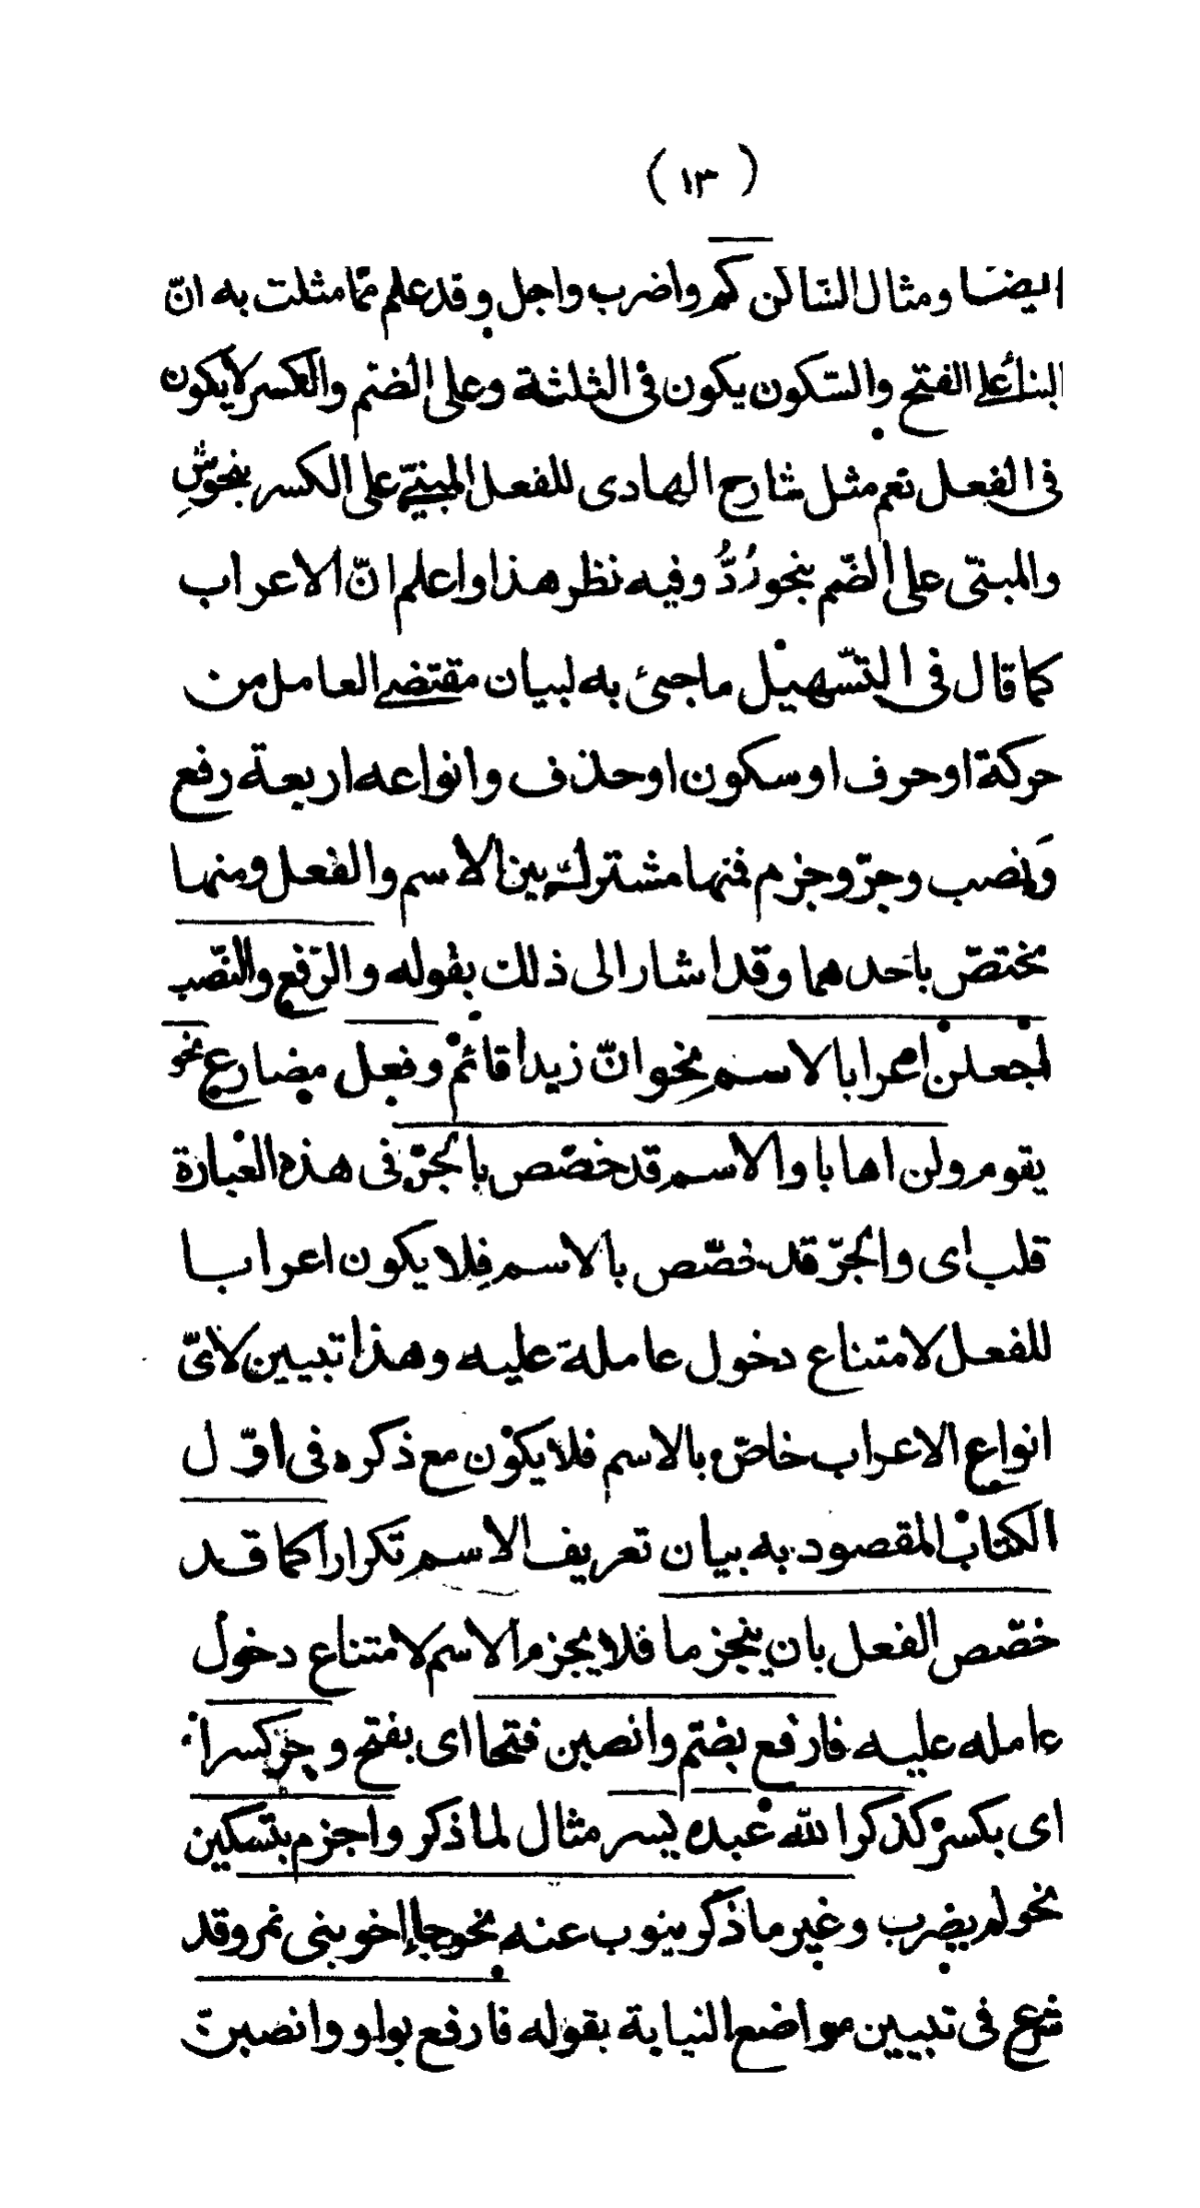 ( ١٣ )
ايضا ومثال السّاكن كم واضرب واجل وقد علم ممّا مثلت به انّ
البناء على الفتح والسّكون يكون فى الثلثة وعلى الضّم والكسر لا يكون
فى الفعل نعم مثل شارح الهادى للفعل المبنىّ على الكسر بنحو شِ
والمبنّى على الضّم بنحو رُدُّ وفيه نظر هذا واعلم انّ الاعراب
كما قال فى التّسهيل ما جىئ به لبيان مقتضى العامل من
حركة او حرف او سكون او حذف وانواعه اربعة رفع
وَنصب وجرّ وجزم فمنها مشترك بين الاسم والفعل ومنها
مختصّ باحدهما وقد اشار الى ذلك بقوله والرّفع والنّصب
اجعلن اعرابا لاسم نحو انّ زيدا قائم وفعل مضارع نحو
يقوم ولن اهابا والاسم قد خصّص بالجرّ فى هذه العبارة
قلب اى والجرّ قد خصّص بالاسم فلا يكون اعرابا
للفعل لامتناع دخول عاملة عليه وهذا تبيين لاىّ
انواع الاعراب خاصّ بالاسم فلا يكون مع ذكره فى اوّل
الكتاب المقصود به بيان تعريف الاسم تكرارا كما قد
خصّص الفعل بان ينجزما فلا يجزم الاسم لامتناع دخول
عامله عليه فارفع بضّم وانصبن فتحا اى بفتح وجرّ كسرا
اى بكسر كذكر الله عبده يسر مثال لما ذكر واجزم بتسكين
نحو لم يضرب وغير ما ذكر ينوب عنه نحو جا اخو بنى نمر وقد
شرع فى تبيين مواضع النيابة بقوله فارفع بواو وانصبنّ